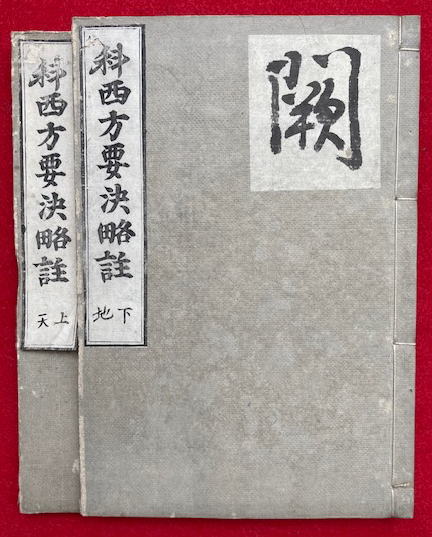 闕
科西方要決略註
下
地
科西方要決略註
上
天